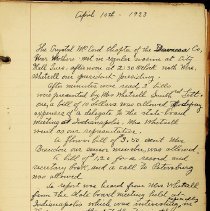 April 10th - 1933
The Crystal McCord Chapter of the Daviess Co.
War Mothers met in regular session at City
Hall Tues. afternoon at 2:30 o'clock with Mrs.
Whitsell our president presiding.
After minutes were read 3 bills
were presented by Mrs Whitsell Smith and
one, a bill of 10 dollars was allowed
expense of a delegate to the state board
meeting at Indianapolis. Mrs Whitsell
went as our representative.
A flower bill of $3.50 sent Mrs.
our senior member, was allowed.
A bill of $1.20 for a record and
secretary book, and a call to Petersburg
was allowed.
A report was heard from Mrs Whitsell
from the state board meeting held at
Indianapolis which was interesting, in